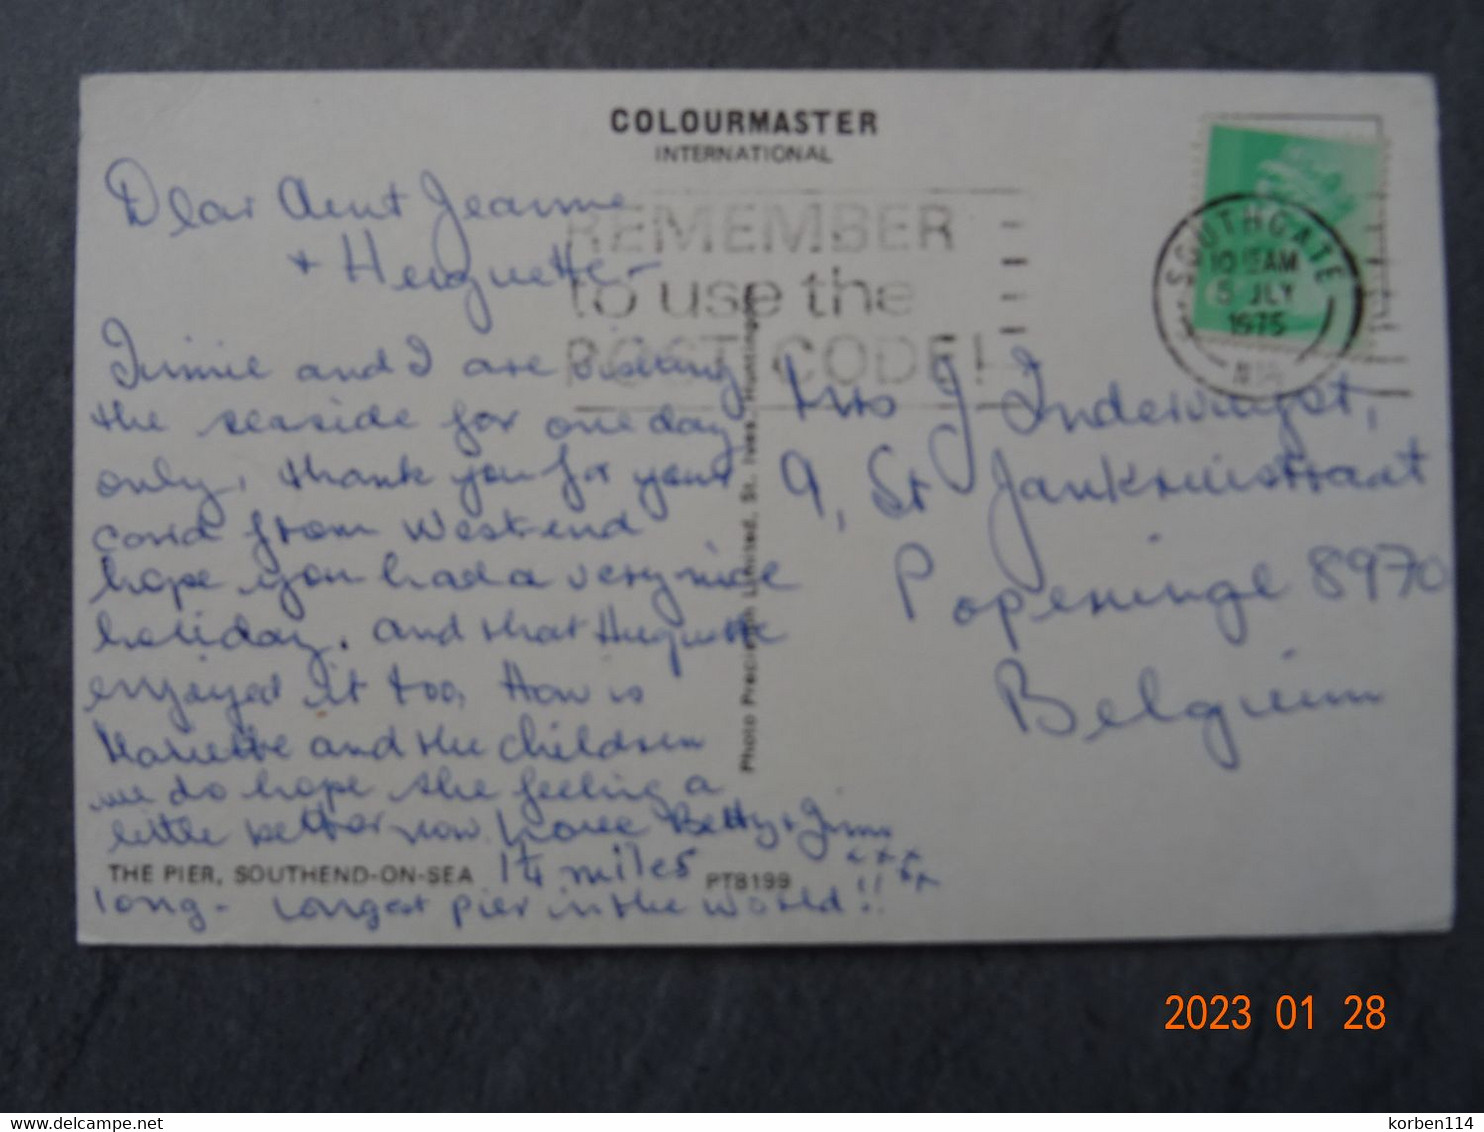 COLOURMASTER
INTERNATIONAL
REMEMBER
to use the
POST CODE!
SOUTHGATE
10 15 AM
5 JLY
1975
N14
Dear Aunt Jeanne
+ Huguette -
Jimmie and I are visiting
the seaside for one day
only, thank you for your
card from Westend
hope you had a very nice
holiday. and that Huguette
enjoyed it too, How is
Mariette and the children
we do hope she feeling a
little better now. Love Betty & Jimmy
x x x x x x
THE PIER, SOUTHEND-ON-SEA
PT8199
1¼ miles
long - Longest pier in the world!!
Photo Precision Limited, St. Ives, Huntingdon
Mrs J Indevuyst,
9, St Jankruisstraat
Poperninge 8970
Belgium
2023 01 28
delcampe.net
korben114